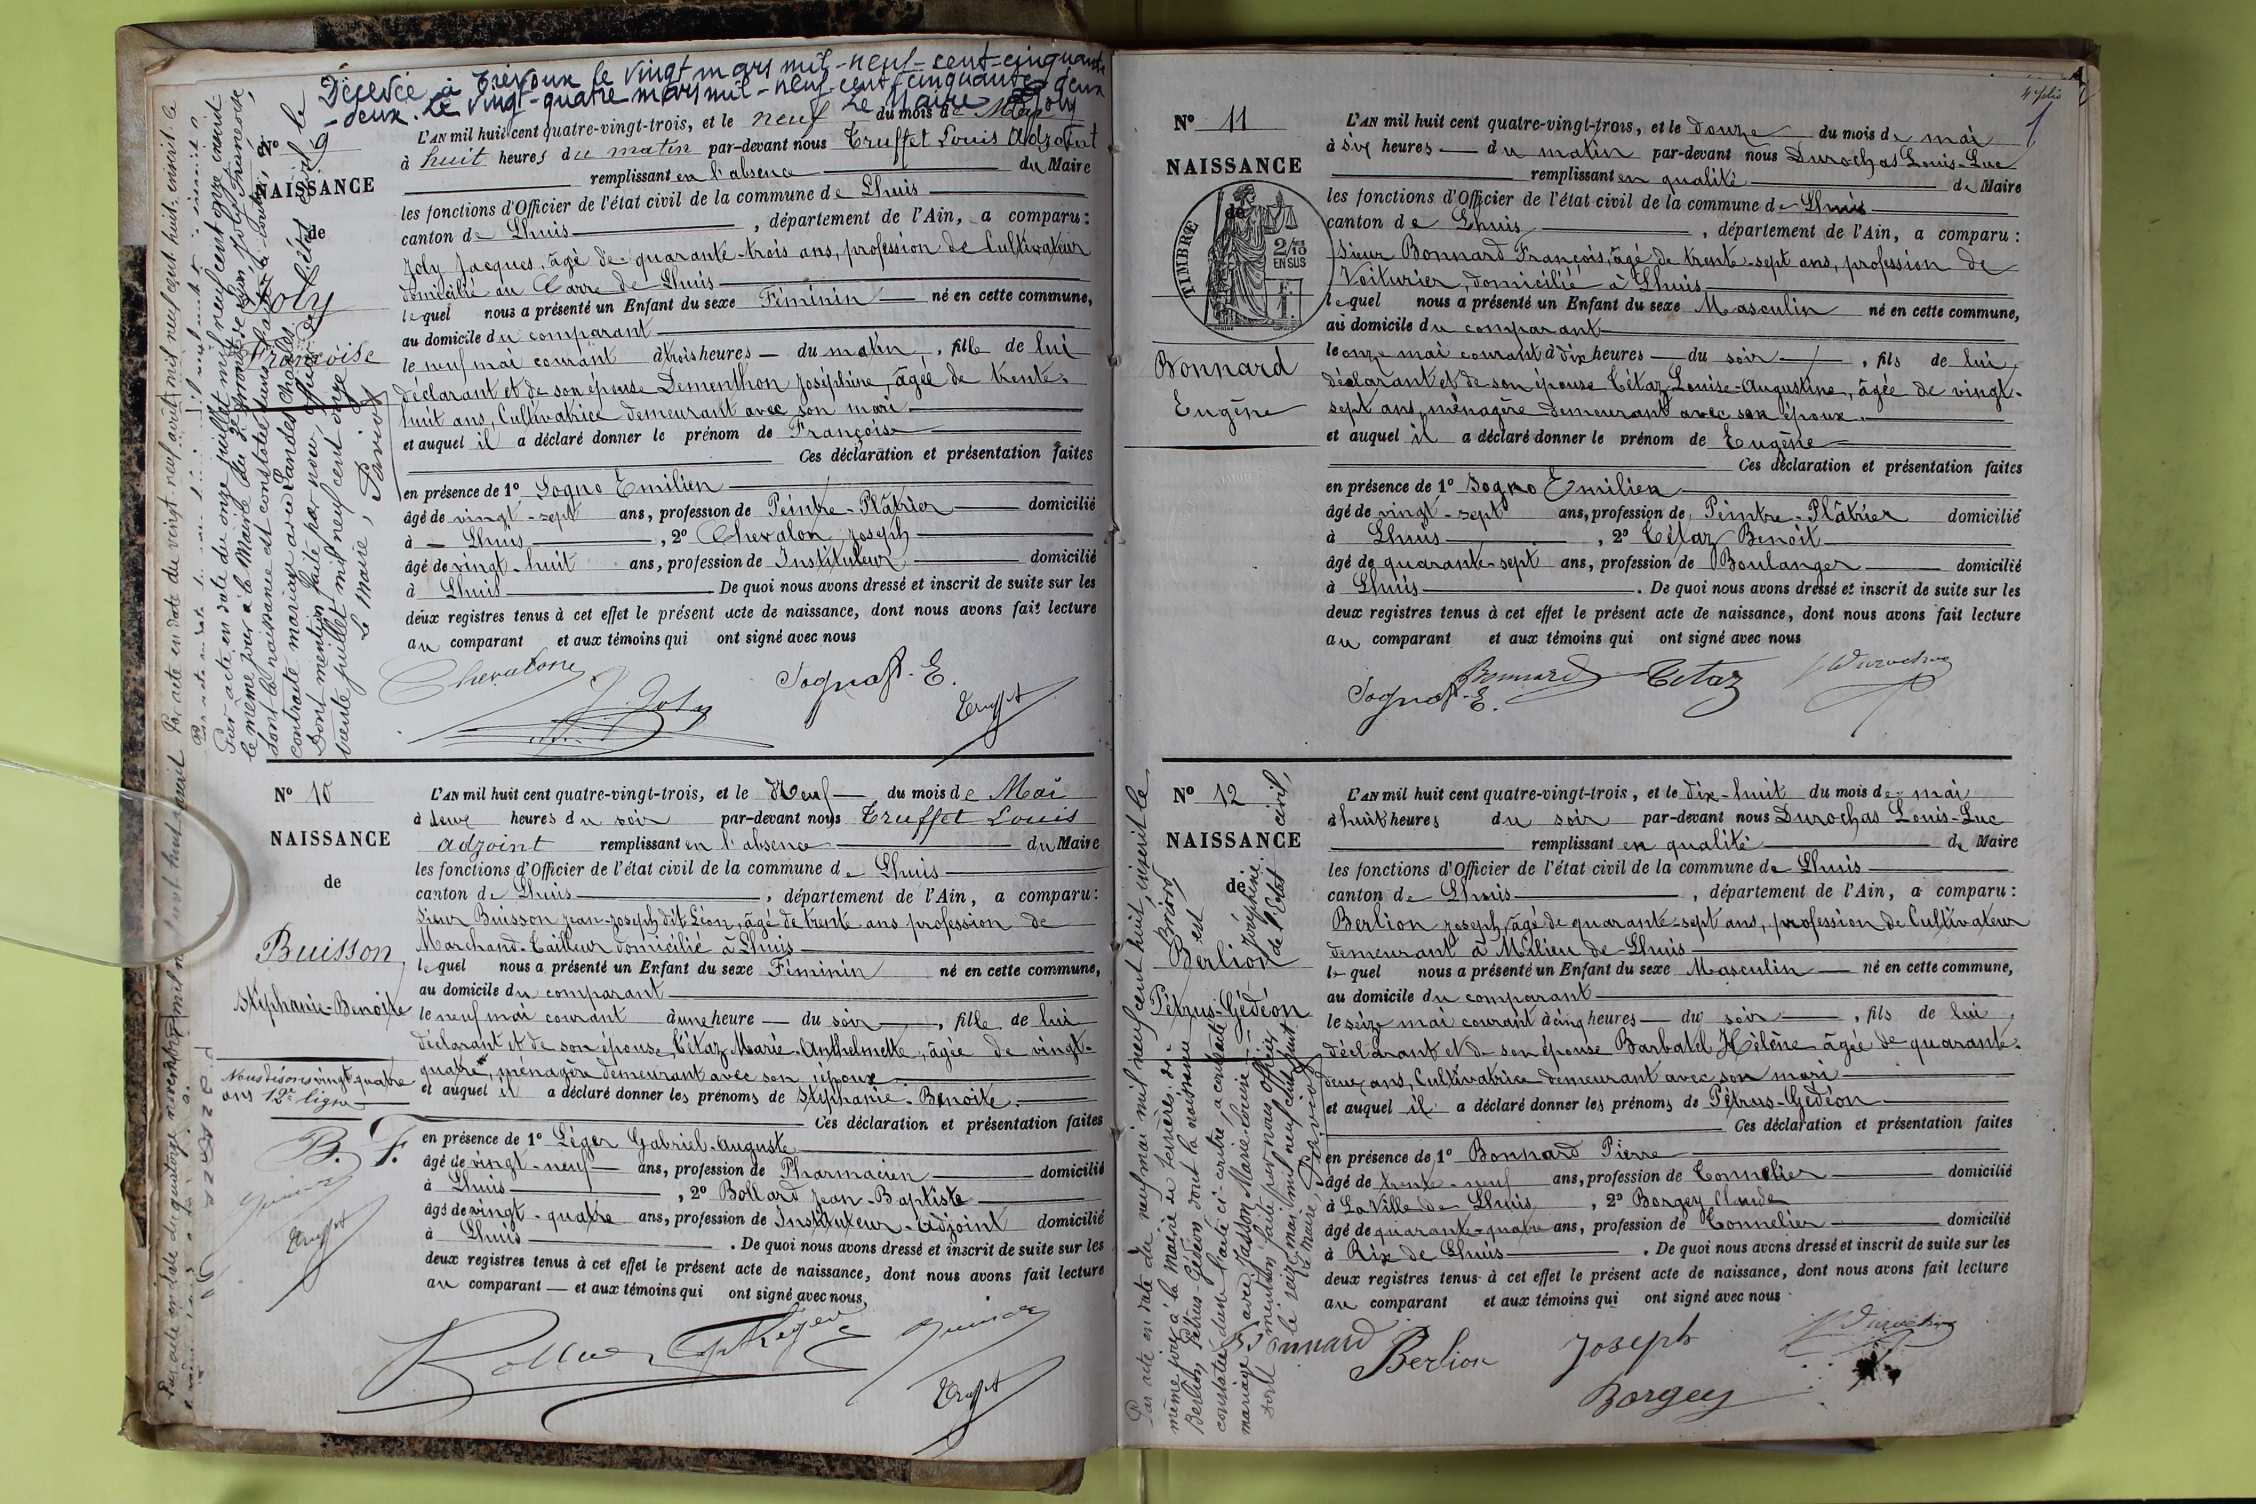 Décédée à Trévoux le vingt mars mil-neuf-cent-cinquante
-deux. Le vingt-quatre mars mil-neuf-cent cinquante-deux
Le Maire Joly
N° 9
NAISSANCE
de
Joly
Françoise
L'AN mil huit cent quatre-vingt-trois, et le neuf du mois de Mai
à huit heures du matin par-devant nous Truffet Louis Adjoint
remplissant en l'absence du Maire
les fonctions d'Officier de l'état civil de la commune de Lhuis
canton de Lhuis, département de l'Ain, a comparu :
Joly Jacques, âgé de quarante-trois ans, profession de Cultivateur
domicilié au Carre de Lhuis
lequel nous a présenté un Enfant du sexe Féminin né en cette commune,
au domicile du comparant
le neuf mai courant à trois heures du matin, fille de lui
déclarant et de son épouse Dementhon Joséphine, âgée de trente-
huit ans, Cultivatrice demeurant avec son mari
et auquel il a déclaré donner le prénom de Françoise
Ces déclaration et présentation faites
en présence de 1° Sogno Emilien
âgé de vingt-sept ans, profession de Peintre-Plâtrier domicilié
à Lhuis, 2° Chevalon Joseph
âgé de vingt-huit ans, profession de Instituteur domicilié
à Lhuis De quoi nous avons dressé et inscrit de suite sur les
deux registres tenus à cet effet le présent acte de naissance, dont nous avons fait lecture
au comparant et aux témoins qui ont signé avec nous
Chevalon J. Joly Sogno E. Truffet
Par acte en date du onze juillet mil neuf cent onze inscrit
le même jour à la Mairie du
Joly Françoise,
dont la naissance est constatée
contracté mariage avec Landes Charles
Dont mention faite par nous, officier de l'état civil le
trente juillet mil neuf cent onze
Le Maire,
N° 10
NAISSANCE
de
Buisson
Stéphanie-Benoite
Nous disons vingt-quatre
ans 12e ligne
B. F.
Truffet
L'AN mil huit cent quatre-vingt-trois, et le Neuf du mois de Mai
à deux heures du soir par-devant nous Truffet Louis
adjoint remplissant en l'absence du Maire
les fonctions d'Officier de l'état civil de la commune de Lhuis
canton de Lhuis, département de l'Ain, a comparu :
Sieur Buisson Jean-Joseph dit Léon, âgé de trente ans profession de
Marchand-Tailleur domicilié à Lhuis
lequel nous a présenté un Enfant du sexe Féminin né en cette commune,
au domicile du comparant
le neuf mai courant à une heure du soir, fille de lui
déclarant et de son épouse Tétaz Marie-Anthelmette, âgée de vingt-
quatre, ménagère demeurant avec son époux
et auquel il a déclaré donner les prénoms de Stéphanie-Benoite
Ces déclaration et présentation faites
en présence de 1° Léger Gabriel-Auguste
âgé de vingt-neuf ans, profession de Pharmacien domicilié
à Lhuis, 2° Bollard Jean-Baptiste
âgé de vingt-quatre ans, profession de Instituteur-Adjoint domicilié
à Lhuis. De quoi nous avons dressé et inscrit de suite sur les
deux registres tenus à cet effet le présent acte de naissance, dont nous avons fait lecture
au comparant et aux témoins qui ont signé avec nous
Truffet
N° 11
NAISSANCE
de
TIMBRE
2/10
EN SUS
Bonnard
Eugène
L'AN mil huit cent quatre-vingt-trois, et le douze du mois de mai
à six heures du matin par-devant nous Durochas Louis-Luc
remplissant en qualité de Maire
les fonctions d'Officier de l'état civil de la commune de Lhuis
canton de Lhuis, département de l'Ain, a comparu :
Sieur Bonnard François, âgé de trente-sept ans, profession de
Voiturier, domicilié à Lhuis
lequel nous a présenté un Enfant du sexe Masculin né en cette commune,
au domicile du comparant
le onze mai courant à dix heures du soir, fils de lui
déclarant et de son épouse Tétaz Louise-Augustine, âgée de vingt-
sept ans, ménagère demeurant avec son époux
et auquel il a déclaré donner le prénom de Eugène
Ces déclaration et présentation faites
en présence de 1° Sogno Emilien
âgé de vingt-sept ans, profession de Peintre-Plâtrier domicilié
à Lhuis, 2° Tétaz Benoit
âgé de quarante-sept ans, profession de Boulanger domicilié
à Lhuis. De quoi nous avons dressé et inscrit de suite sur les
deux registres tenus à cet effet le présent acte de naissance, dont nous avons fait lecture
au comparant et aux témoins qui ont signé avec nous
Sogno E. Bonnard Tétaz
N° 12
NAISSANCE
de
Berlion
Pétrus-Gédéon
L'AN mil huit cent quatre-vingt-trois, et le dix-huit du mois de mai
à huit heures du soir par-devant nous Durochas Louis-Luc
remplissant en qualité de Maire
les fonctions d'Officier de l'état civil de la commune de Lhuis
canton de Lhuis, département de l'Ain, a comparu :
Berlion Joseph, âgé de quarante-sept ans, profession de Cultivateur
demeurant à Milieu de Lhuis
lequel nous a présenté un Enfant du sexe Masculin né en cette commune,
au domicile du comparant
le seize mai courant à cinq heures du soir, fils de lui
déclarant et de son épouse Barbatel Hélène âgée de quarante-
deux ans, Cultivatrice demeurant avec son mari
et auquel il a déclaré donner les prénoms de Pétrus-Gédéon
Ces déclaration et présentation faites
en présence de 1° Bonnard Pierre
âgé de trente-neuf ans, profession de Tonnelier domicilié
à La Ville de Lhuis, 2° Borgey Claude
âgé de quarante-quatre ans, profession de Tonnelier domicilié
à Rix de Lhuis. De quoi nous avons dressé et inscrit de suite sur les
deux registres tenus à cet effet le présent acte de naissance, dont nous avons fait lecture
au comparant et aux témoins qui ont signé avec nous
Bonnard Berlion Joseph
Borgey
Par acte en date du neuf mai mil neuf cent huit, inscrit le
même jour à la mairie de Briord
Berlion Pétrus-Gédéon dont la naissance est
constatée d'une part ci-contre a contracté
mariage avec Marie-Louise-Joséphine.
Dont mention faite par nous, officier de l'état civil,
le seize mai mil neuf cent huit
Le maire,